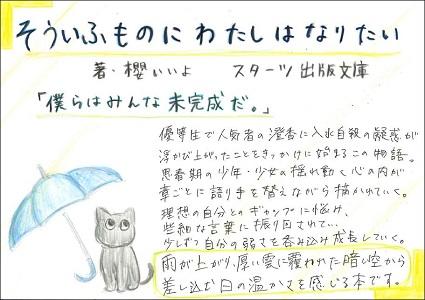 そういふものにわたしはなりたい
著・櫻いいよ スターツ出版文庫
「僕らはみんな未完成だ。」
優等生で人気者の澄香に入水自殺の疑惑が
浮かび上がったことをきっかけに始まるこの物語。
思春期の少年・少女の揺れ動く心の内が
章ごとに語り手を替えながら描かれていく。
理想の自分とのギャップに悩み、
些細な言葉に振り回されて…
少しずつ自分の弱さを呑み込み成長していく。
雨が上がり、厚い雲に覆われた暗い空から
差し込む日の温かさを感じる本です。